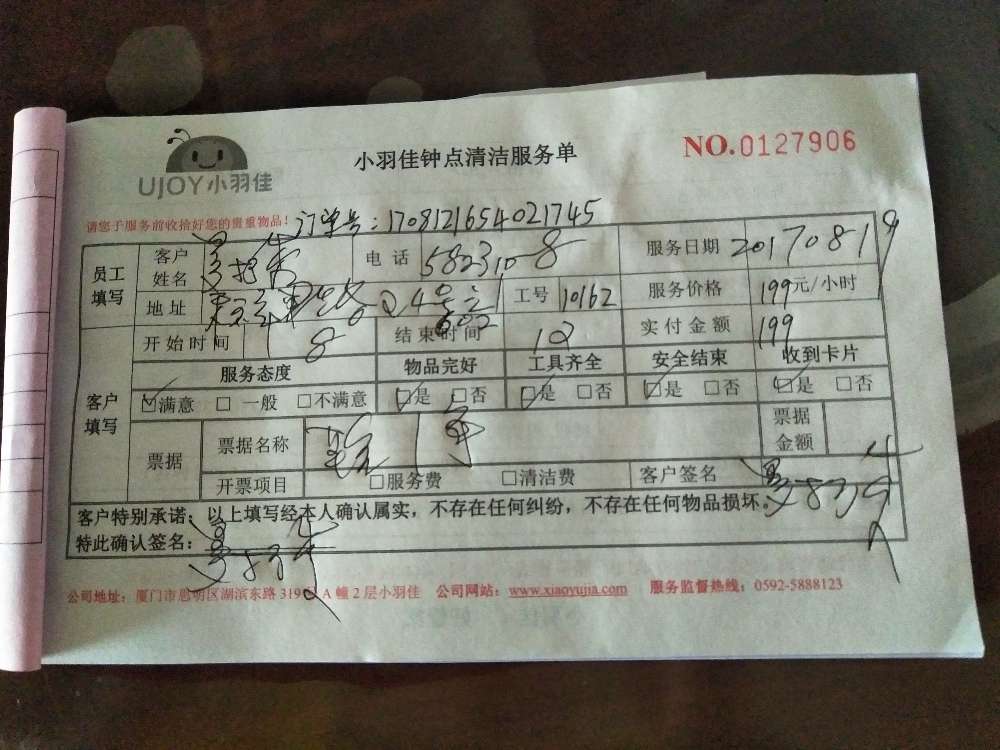 UJOY小羽佳
小羽佳钟点清洁服务单
NO.0127906
请您于服务前收拾好您的贵重物品！ 订单号：1708121654021745
员工填写 客户姓名 电话 服务日期 20170819
地址 工号 10162 服务价格 199元/小时
开始时间 8 结束时间 实付金额 199
客户填写 服务态度 物品完好 工具齐全 安全结束 收到卡片
满意 一般 不满意 是 否 是 否 是 否 是 否
票据 票据名称 票据金额
开票项目 服务费 清洁费 客户签名
客户特别承诺：以上填写经本人确认属实，不存在任何纠纷，不存在任何物品损坏。
特此确认签名：
公司地址：厦门市思明区湖滨东路319号A幢2层小羽佳 公司网站：www.xiaoyujia.com 服务监督热线：0592-5888123